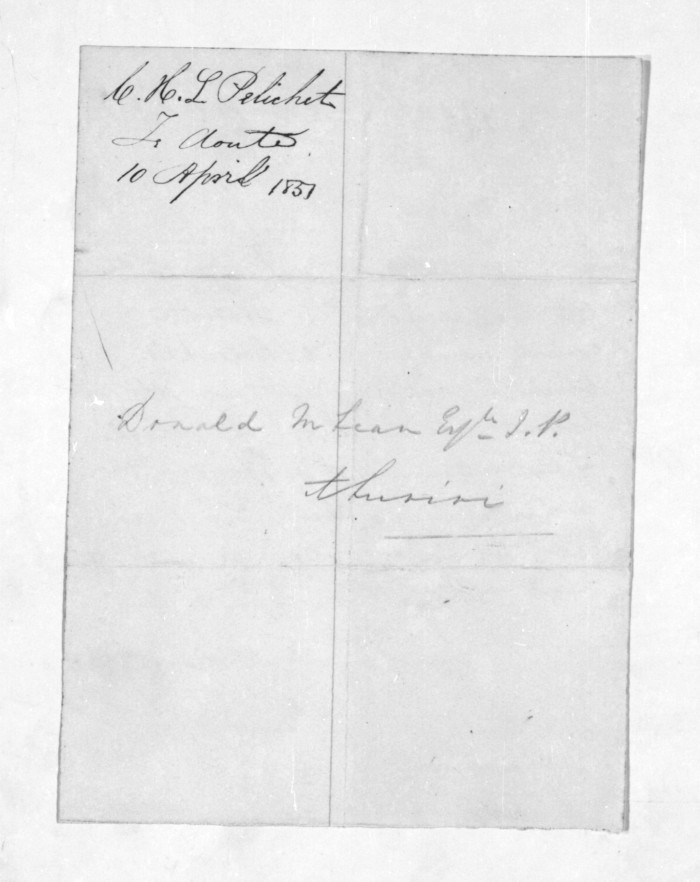 C. H. L Pelichet
10 April 1851
Donald McLean Esqre J. P.
Ahuriri